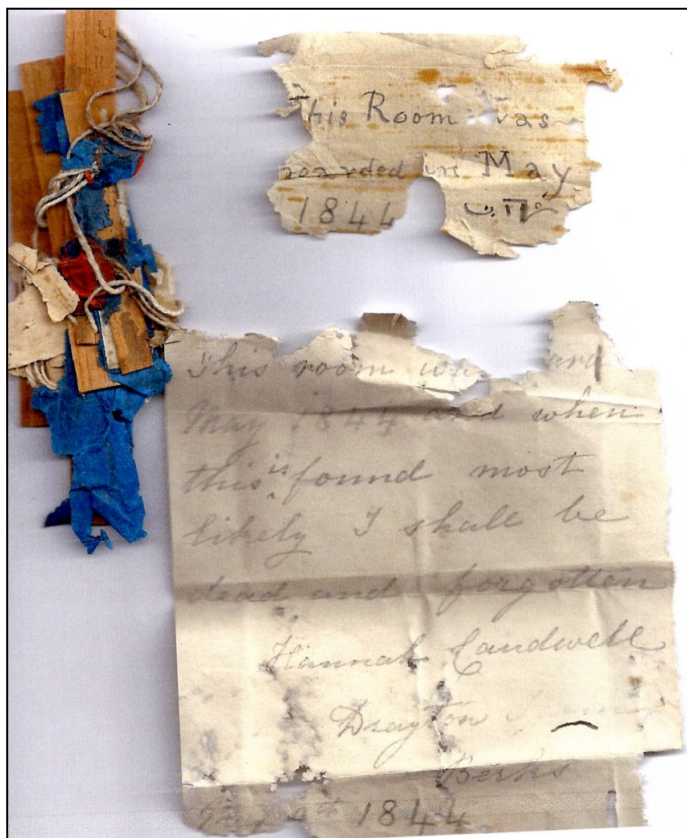 This Room was
in May
1844
This room
May 1844 and when
this is found most
likely I shall be
dead and forgotten
Hannah Candwell
Drayton
Berks
1844